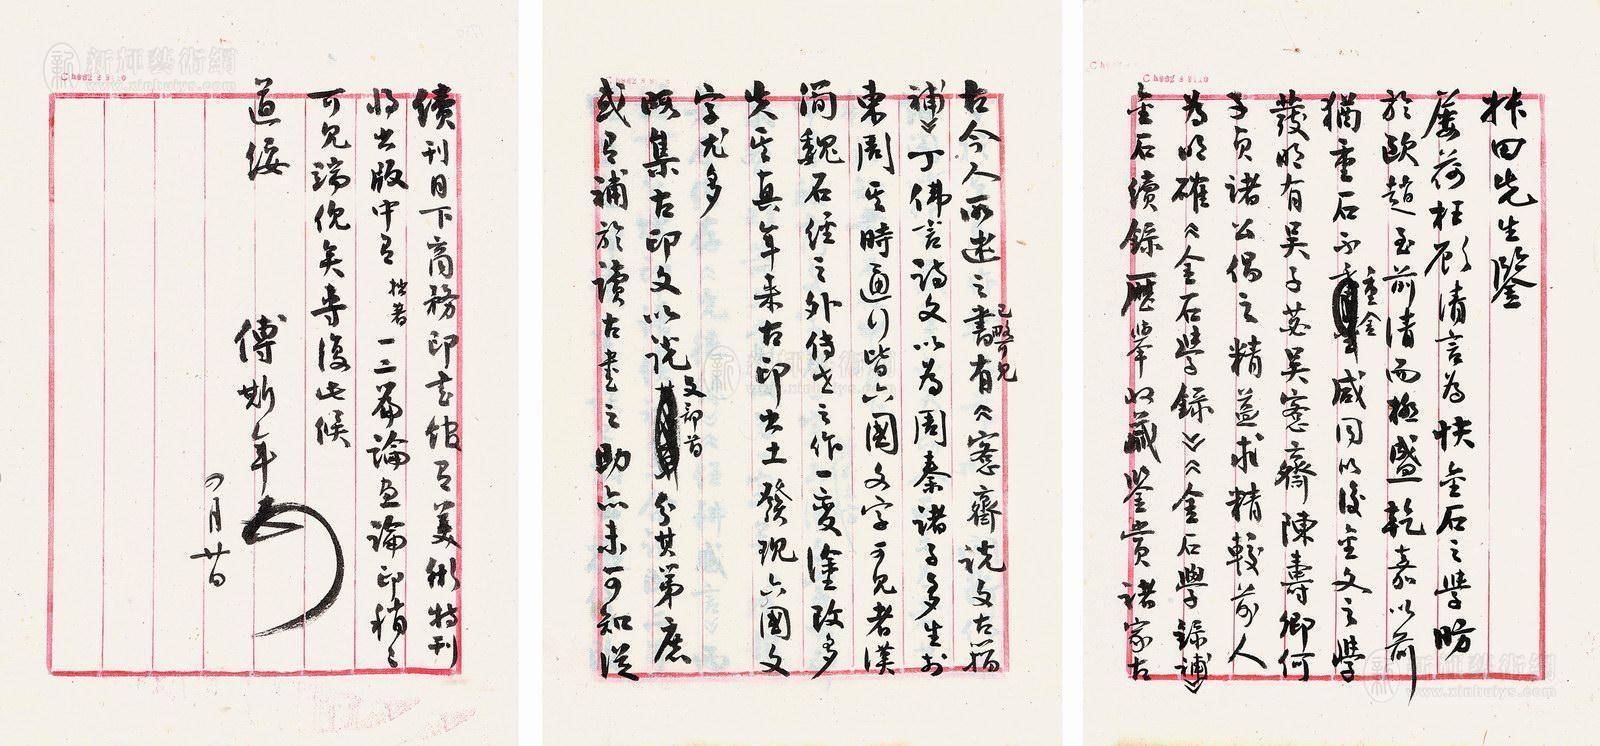 田先生鑒
屢荷枉顧清言為快金石之學昉
於歐趙至前清而極盛乾嘉以前
猶重石不重金咸同以後金文之學
發明有吳子苾吳愙齋陳壽卿何
子貞諸公偶之精益求精較前人
為明確《金石學錄》《金石學錄補》
金石續錄歷舉收藏鑒賞諸家古
古今人所述之書已略可見有《愙齋說文古籀
補》丁佛言詩文以為周秦諸子多生於
東周其時通行皆六國文字可見者漢
簡魏石經之外傳世之作一變塗改多
失其真年來古印出土發現六國文
字尤多
暇集古印文以說文部首分其第庶
或有補於讀古書之助亦未可知從
續刊目下商務印書館有美術特刊
將出版中有拙著一二篇論畫論印稍々
可見端倪矣專復此候
道綏
傅斯年
月廿
www.xinhuiys.com